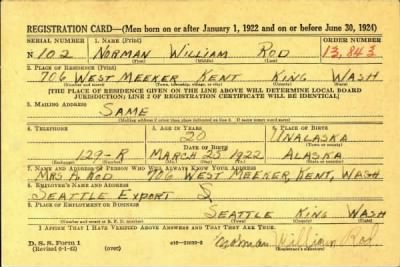 REGISTRATION CARD—(Men born on or after January 1, 1922 and on or before June 30, 1924)
SERIAL NUMBER 1. NAME (Print) ORDER NUMBER
N 102 NORMAN WILLIAM ROD 13,843
(First) (Middle) (Last)
2. PLACE OF RESIDENCE (Print)
706 WEST MEEKER KENT KING WASH
(Number and street) (Town, township, village, or city) (County) (State)
[THE PLACE OF RESIDENCE GIVEN ON THE LINE ABOVE WILL DETERMINE LOCAL BOARD
JURISDICTION; LINE 2 OF REGISTRATION CERTIFICATE WILL BE IDENTICAL]
3. MAILING ADDRESS
SAME
[Mailing address if other than place indicated on line 2. If same insert word same]
4. TELEPHONE 5. AGE IN YEARS 6. PLACE OF BIRTH
20 UNALASKA
DATE OF BIRTH (Town or county)
129-R MARCH 25 1922 ALASKA
(Exchange) (Number) (Mo.) (Day) (Yr.) (State or country)
7. NAME AND ADDRESS OF PERSON WHO WILL ALWAYS KNOW YOUR ADDRESS
MRS A ROD 706 WEST MEEKER, KENT, WASH
8. EMPLOYER'S NAME AND ADDRESS
SEATTLE EXPORT
9. PLACE OF EMPLOYMENT OR BUSINESS
SEATTLE KING WASH
(Number and street or R. F. D. number) (Town) (County) (State)
I AFFIRM THAT I HAVE VERIFIED ABOVE ANSWERS AND THAT THEY ARE TRUE.
D. S. S. Form 1 Norman William Rod
(Revised 6-1-42) (over) (Registrant's signature)